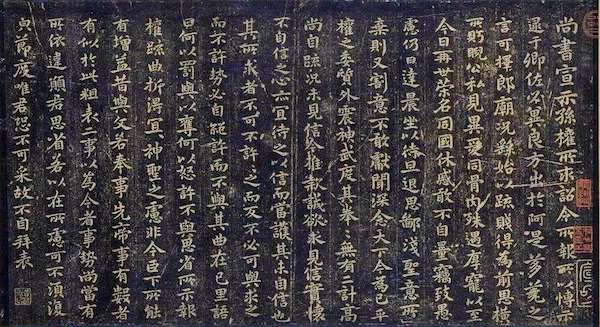 尚書宣示孫權所求詔令所報所以博示
逮于卿佐必冀良方出於阿是芻蕘之
言可擇郎廟況繇始以疏賤得為前恩橫
所眄睨公私見異愛同骨肉殊遇厚寵以至
今日再世榮名同國休慼敢不自量竊致愚
慮仍日達晨坐以待旦退思鄙淺聖意所
棄則又割意不敢獻聞深念天下今為已平
權之委質外震神武度其拳々無有二計高
尚自疏況未見信今推款誠欲求見信實懷
不自信之心亦宜待之以信而當護其未自信也
其所求者不可不許々之而反不必可與求之
而不許勢必自絕許而不與其曲在己里語
曰何以罰與以奪何以怒許不與思省所示報
權疏曲折得宜々神聖之慮非今臣下所能
有增益昔與文若奉事先帝事有數者
有似於此粗表二事以為今者事勢尚當有
所依違願君思省若以在所慮可不須復
貌節度唯君恐不可采故不自拜表